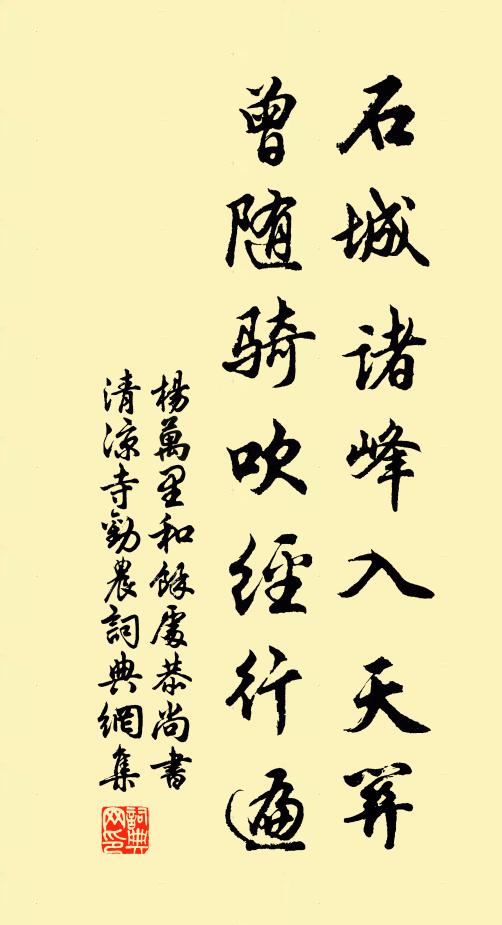 石城諸峰入天笄
曾随騎吹經行遍
楊萬里和餘處恭尚書
清涼寺勸農詞典網集
詞典网印